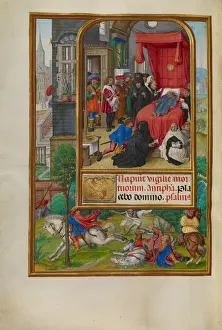 Incipiut vigilie mor
tuorum. Antiphõ. Pla
cebo domino. psalm⁹